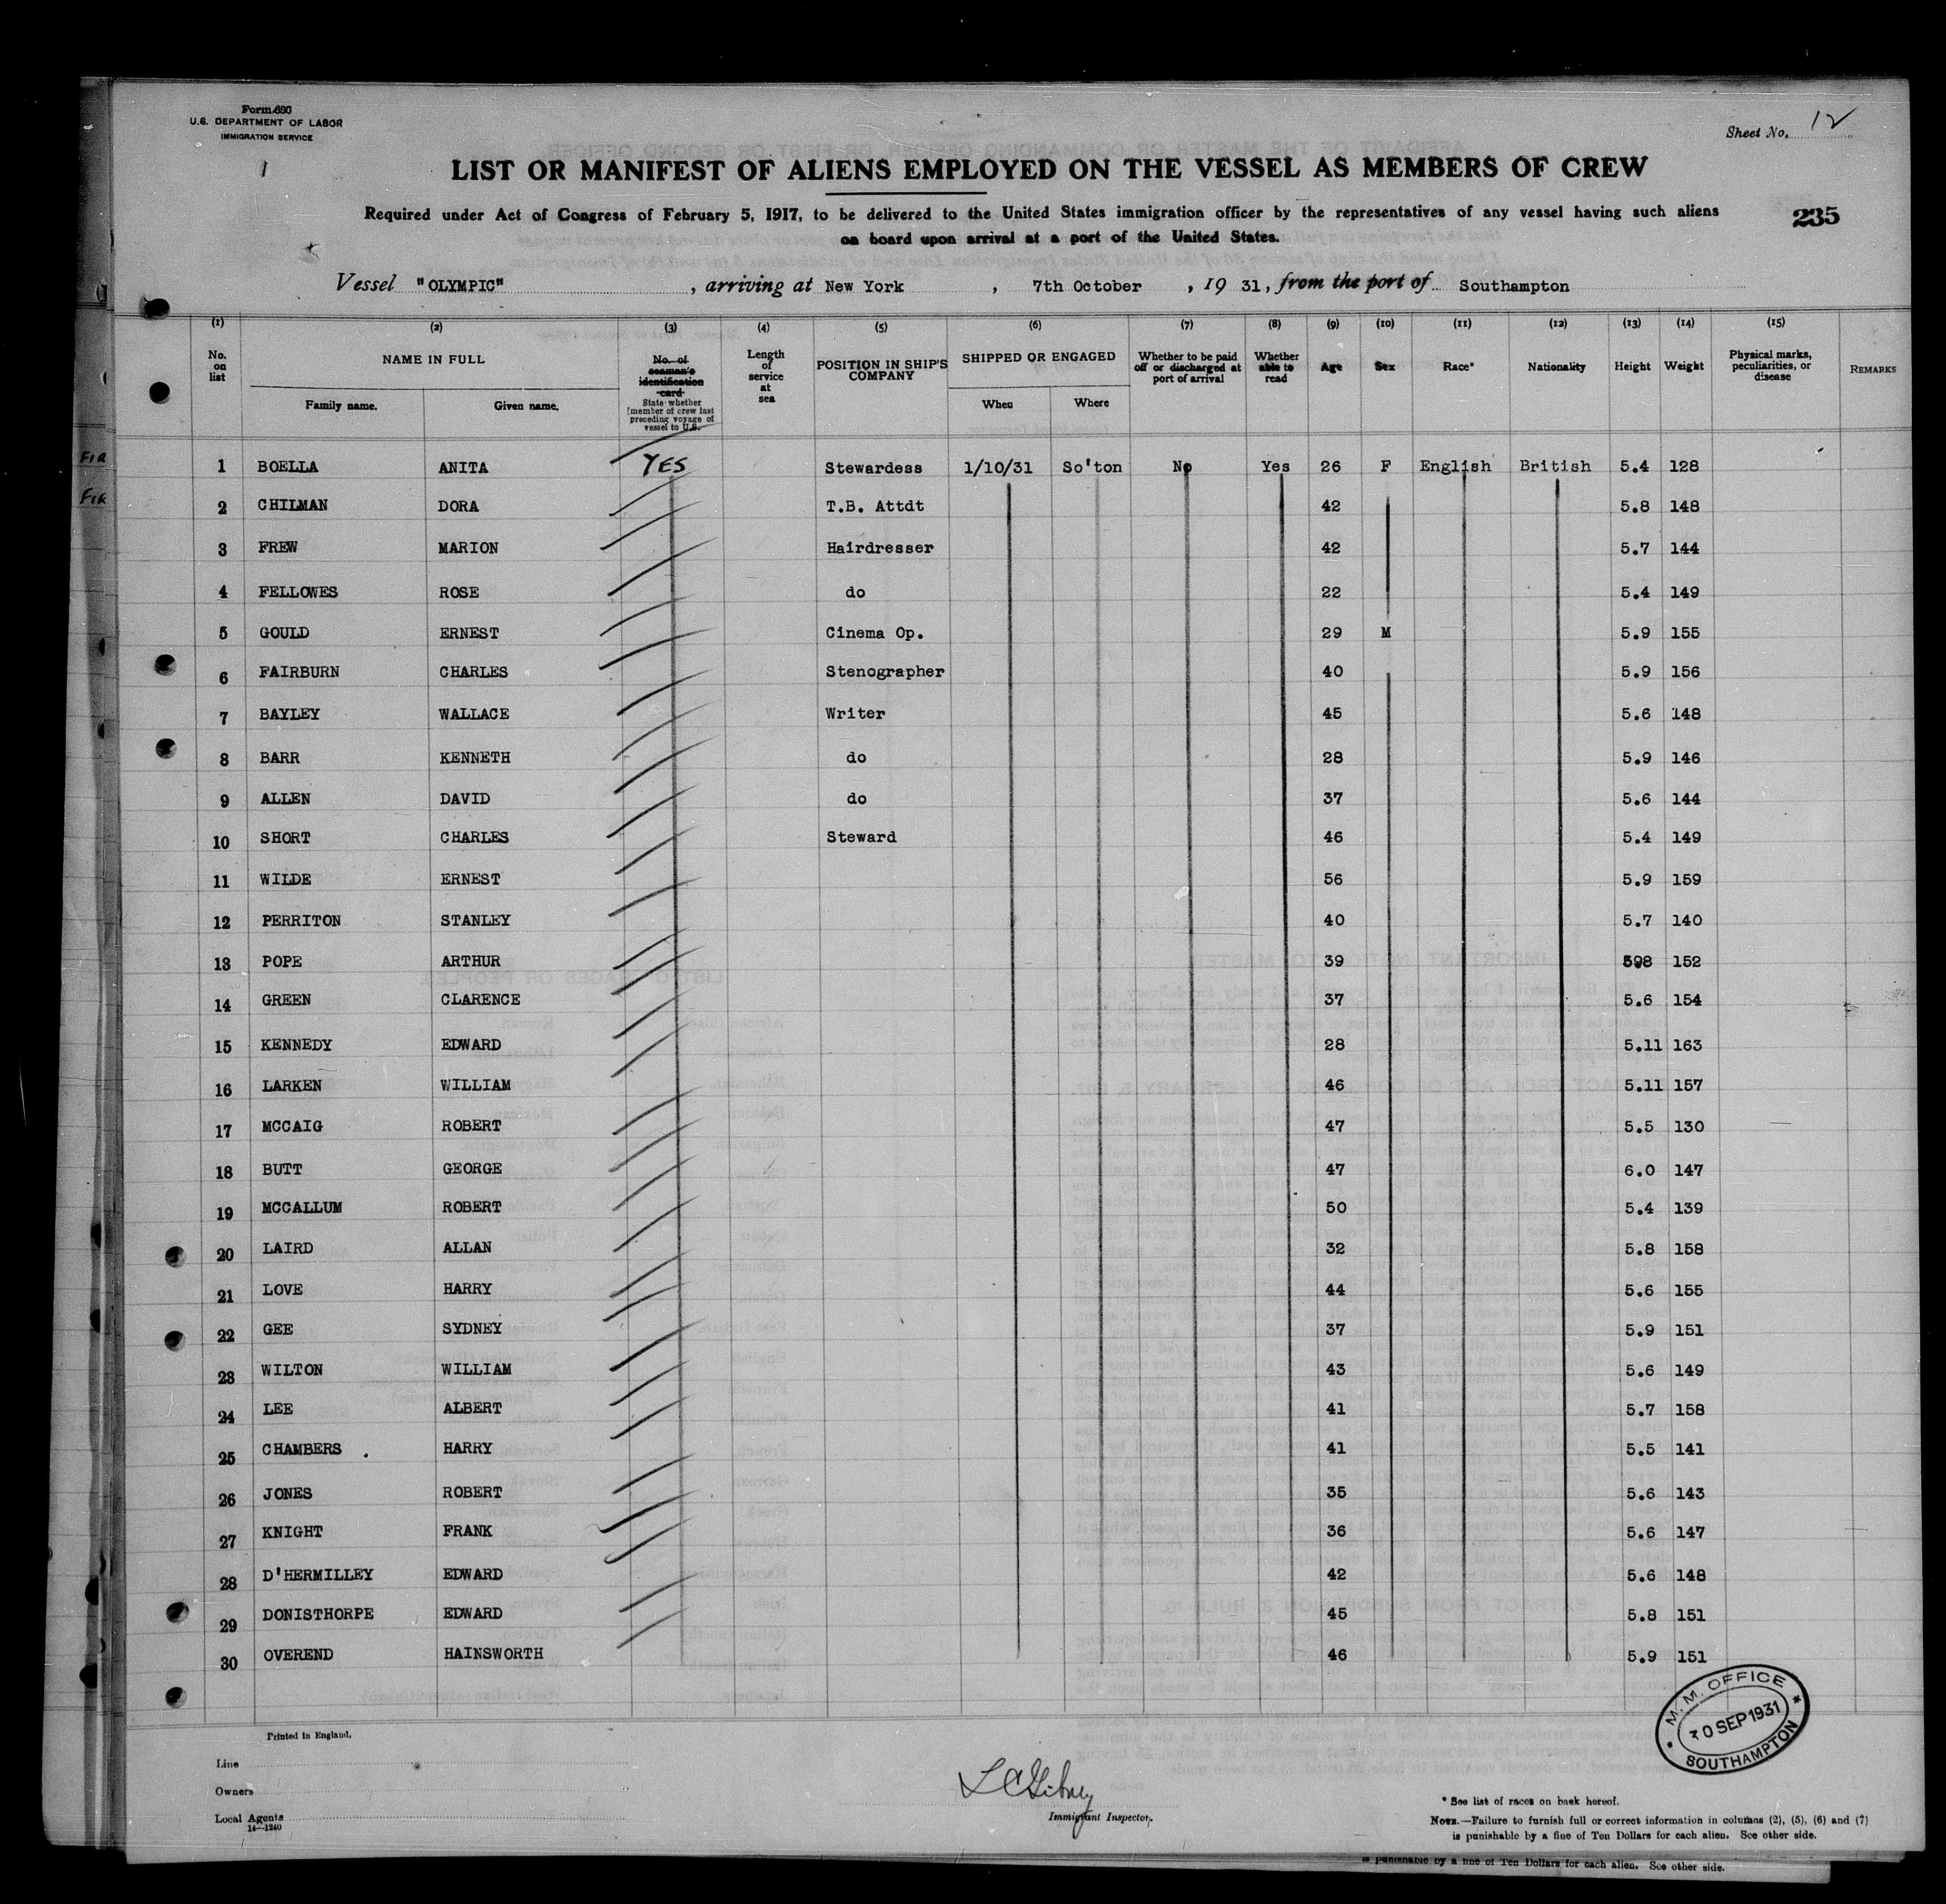 Form 680
U.S. DEPARTMENT OF LABOR
IMMIGRATION SERVICE
1
Sheet No. 12
LIST OR MANIFEST OF ALIENS EMPLOYED ON THE VESSEL AS MEMBERS OF CREW
Required under Act of Congress of February 5, 1917, to be delivered to the United States immigration officer by the representatives of any vessel having such aliens
on board upon arrival at a port of the United States.
235
Vessel "OLYMPIC", arriving at New York, 7th October, 19 31, from the port of Southampton
(1) (2) (3) (4) (5) (6) (7) (8) (9) (10) (11) (12) (13) (14) (15)
No. on list
NAME IN FULL
Family name. Given name.
No. of seaman's identification card
State whether member of crew last preceding voyage of vessel to U.S.
Length of service at sea
POSITION IN SHIP'S COMPANY
SHIPPED OR ENGAGED
When Where
Whether to be paid off or discharged at port of arrival
Whether able to read
Age
Sex
Race*
Nationality
Height
Weight
Physical marks, peculiarities, or disease
REMARKS
1 BOELLA ANITA YES Stewardess 1/10/31 So'ton No Yes 26 F English British 5.4 128
2 CHILMAN DORA T.B. Attdt 42 5.8 148
3 FREW MARION Hairdresser 42 5.7 144
4 FELLOWES ROSE do 22 5.4 149
5 GOULD ERNEST Cinema Op. 29 M 5.9 155
6 FAIRBURN CHARLES Stenographer 40 5.9 156
7 BAYLEY WALLACE Writer 45 5.6 148
8 BARR KENNETH do 28 5.9 146
9 ALLEN DAVID do 37 5.6 144
10 SHORT CHARLES Steward 46 5.4 149
11 WILDE ERNEST 56 5.9 159
12 PERRITON STANLEY 40 5.7 140
13 POPE ARTHUR 39 152
14 GREEN CLARENCE 37 5.6 154
15 KENNEDY EDWARD 28 5.11 163
16 LARKEN WILLIAM 46 5.11 157
17 MCCAIG ROBERT 47 5.5 130
18 BUTT GEORGE 47 6.0 147
19 MCCALLUM ROBERT 50 5.4 139
20 LAIRD ALLAN 32 5.8 158
21 LOVE HARRY 44 5.6 155
22 GEE SYDNEY 37 5.9 151
23 WILTON WILLIAM 43 5.6 149
24 LEE ALBERT 41 5.7 158
25 CHAMBERS HARRY 41 5.5 141
26 JONES ROBERT 35 5.6 143
27 KNIGHT FRANK 36 5.6 147
28 D'HERMILLEY EDWARD 42 5.6 148
29 DONISTHORPE EDWARD 45 5.8 151
30 OVEREND HAINSWORTH 46 5.9 151
M.M. OFFICE
30 SEP 1931
SOUTHAMPTON
Printed in England.
Line
Owners
Local Agents
14—1240
Immigrant Inspector.
* See list of races on back hereof.
NOTE.—Failure to furnish full or correct information in columns (2), (5), (6) and (7)
is punishable by a fine of Ten Dollars for each alien. See other side.
is punishable by a fine of Ten Dollars for each alien. See other side.